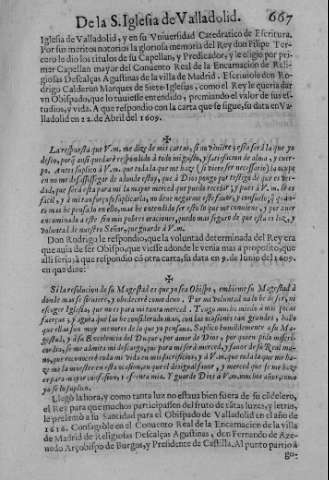 De la S. Iglesia de Valladolid. 667
Iglesia de Valladolid, y en su Vniuersidad Catedratico de Escritura.
Por sus meritos notorios la gloriosa memoria del Rey don Filipe Ter-
cero le dio los titulos de su Capellan, y Predicador, y le eligio por pri-
mer Capellan mayor del Conuento Real de la Encarnacion de Reli-
giosas Descalças Agustinas de la villa de Madrid. Escriuiole don Ro-
drigo Calderon Marques de Siete-Iglesias, como el Rey le queria dar
vn Obispado, que lo tuuiesse entendido, premiando el valor de sus es-
tudios, y vida. A que respondio con la carta que se sigue, su data en Va-
lladolid en 22. de Abril del 1609.
La respuesta que V.m. me dize de mi carta, si yo viniere; essa será la que yo
desseo, por que quedaré respondido à todo mi gusto, y satisfacion de alma, y cuer-
po. Antes suplico à V.m. por toda la que me haze
en no me desassossegar de donde estoy, que à Dios pongo por testigo de que es ver-
dad, que será esta para mi la mayor merced que puedo recebir; y pues V.m. le es
facil, y à mi tan forçoso suplicarla, no deue negarme este fauor, y consuelo, que
mas he pensado en ello, mas he entendido ser esto lo que me conuiene, y por auer
encaminado à este fin mis pobres oraciones, puedo mas seguro de que esta es luz, y
voluntad de nuestro Señor, que guarde à V.m.
Don Rodrigo le respondio, que la voluntad determinada del Rey era
que auia de ser Obispo, que viesse donde le venia mas a proposito, que
alli seria; à que respondio cõ otra carta, su data en 9. de Iunio del 1609.
en que dize:
Si la resolucion de su Magestad es que yo sea Obispo, embieme su Magestad à
donde mas se siruiere, y obedeceré como deuo. Por mi voluntad no lo he de ser, ni
escoger Iglesias, que
fuerças; y segura que las he considerado mas, son las
que ellas son muy menores de lo que yo pensaua. Suplico humildemente à su Ma-
gestad, y à su Excelencia del Duque, por amor de Dios, por quien
cordia, se me admita mi descargo, que para mi será merced, y fauor de su Real ma-
no, que reconoceré toda mi vida en mis sacrificios, y à V.m. que toda la que me ha-
ze
para mayor V.m. muchos años, como
yo se lo suplico.
Llegò la hora, y como tanta luz no estaua bien fuera de su cãdelero,
el Rey para que muchos participassen del fruto de tãtas luzes, y letras,
le presentò a su Santidad para el Obispado de Valladolid en el año de
1616. Consagròle en el Conuento Real de la Encarnacion de la villa
de Madrid de Religiosas Descalças Agustinas, don Fernando de Aze-
uedo Arçobispo de Burgos, y Presidente de Castilla. Al punto partio à
go-